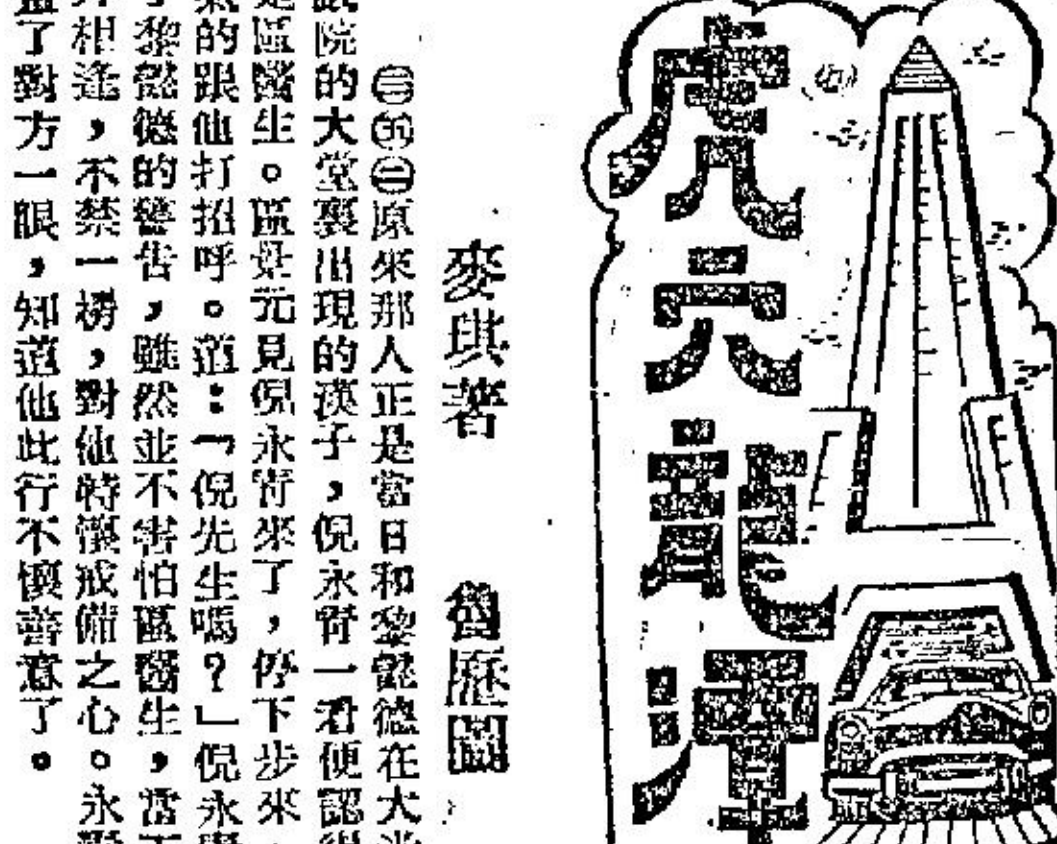 虎穴龍潭
麥琪著　魯歷圖
㊂㊄㊁原來那人正是當日和黎懿德在大光
戲院的大堂裏出現的漢子，倪永甯一看便認得
是區醫生。區元見倪永甯來了，停下步來，
氣的跟他打招呼。道：「倪先生嗎？」倪永
了黎懿德的警告，雖然並不害怕區醫生，當下
相逢，不禁一楞，對他時懷戒備之心。永
了對方一眼，知道他此行不懷善意了。